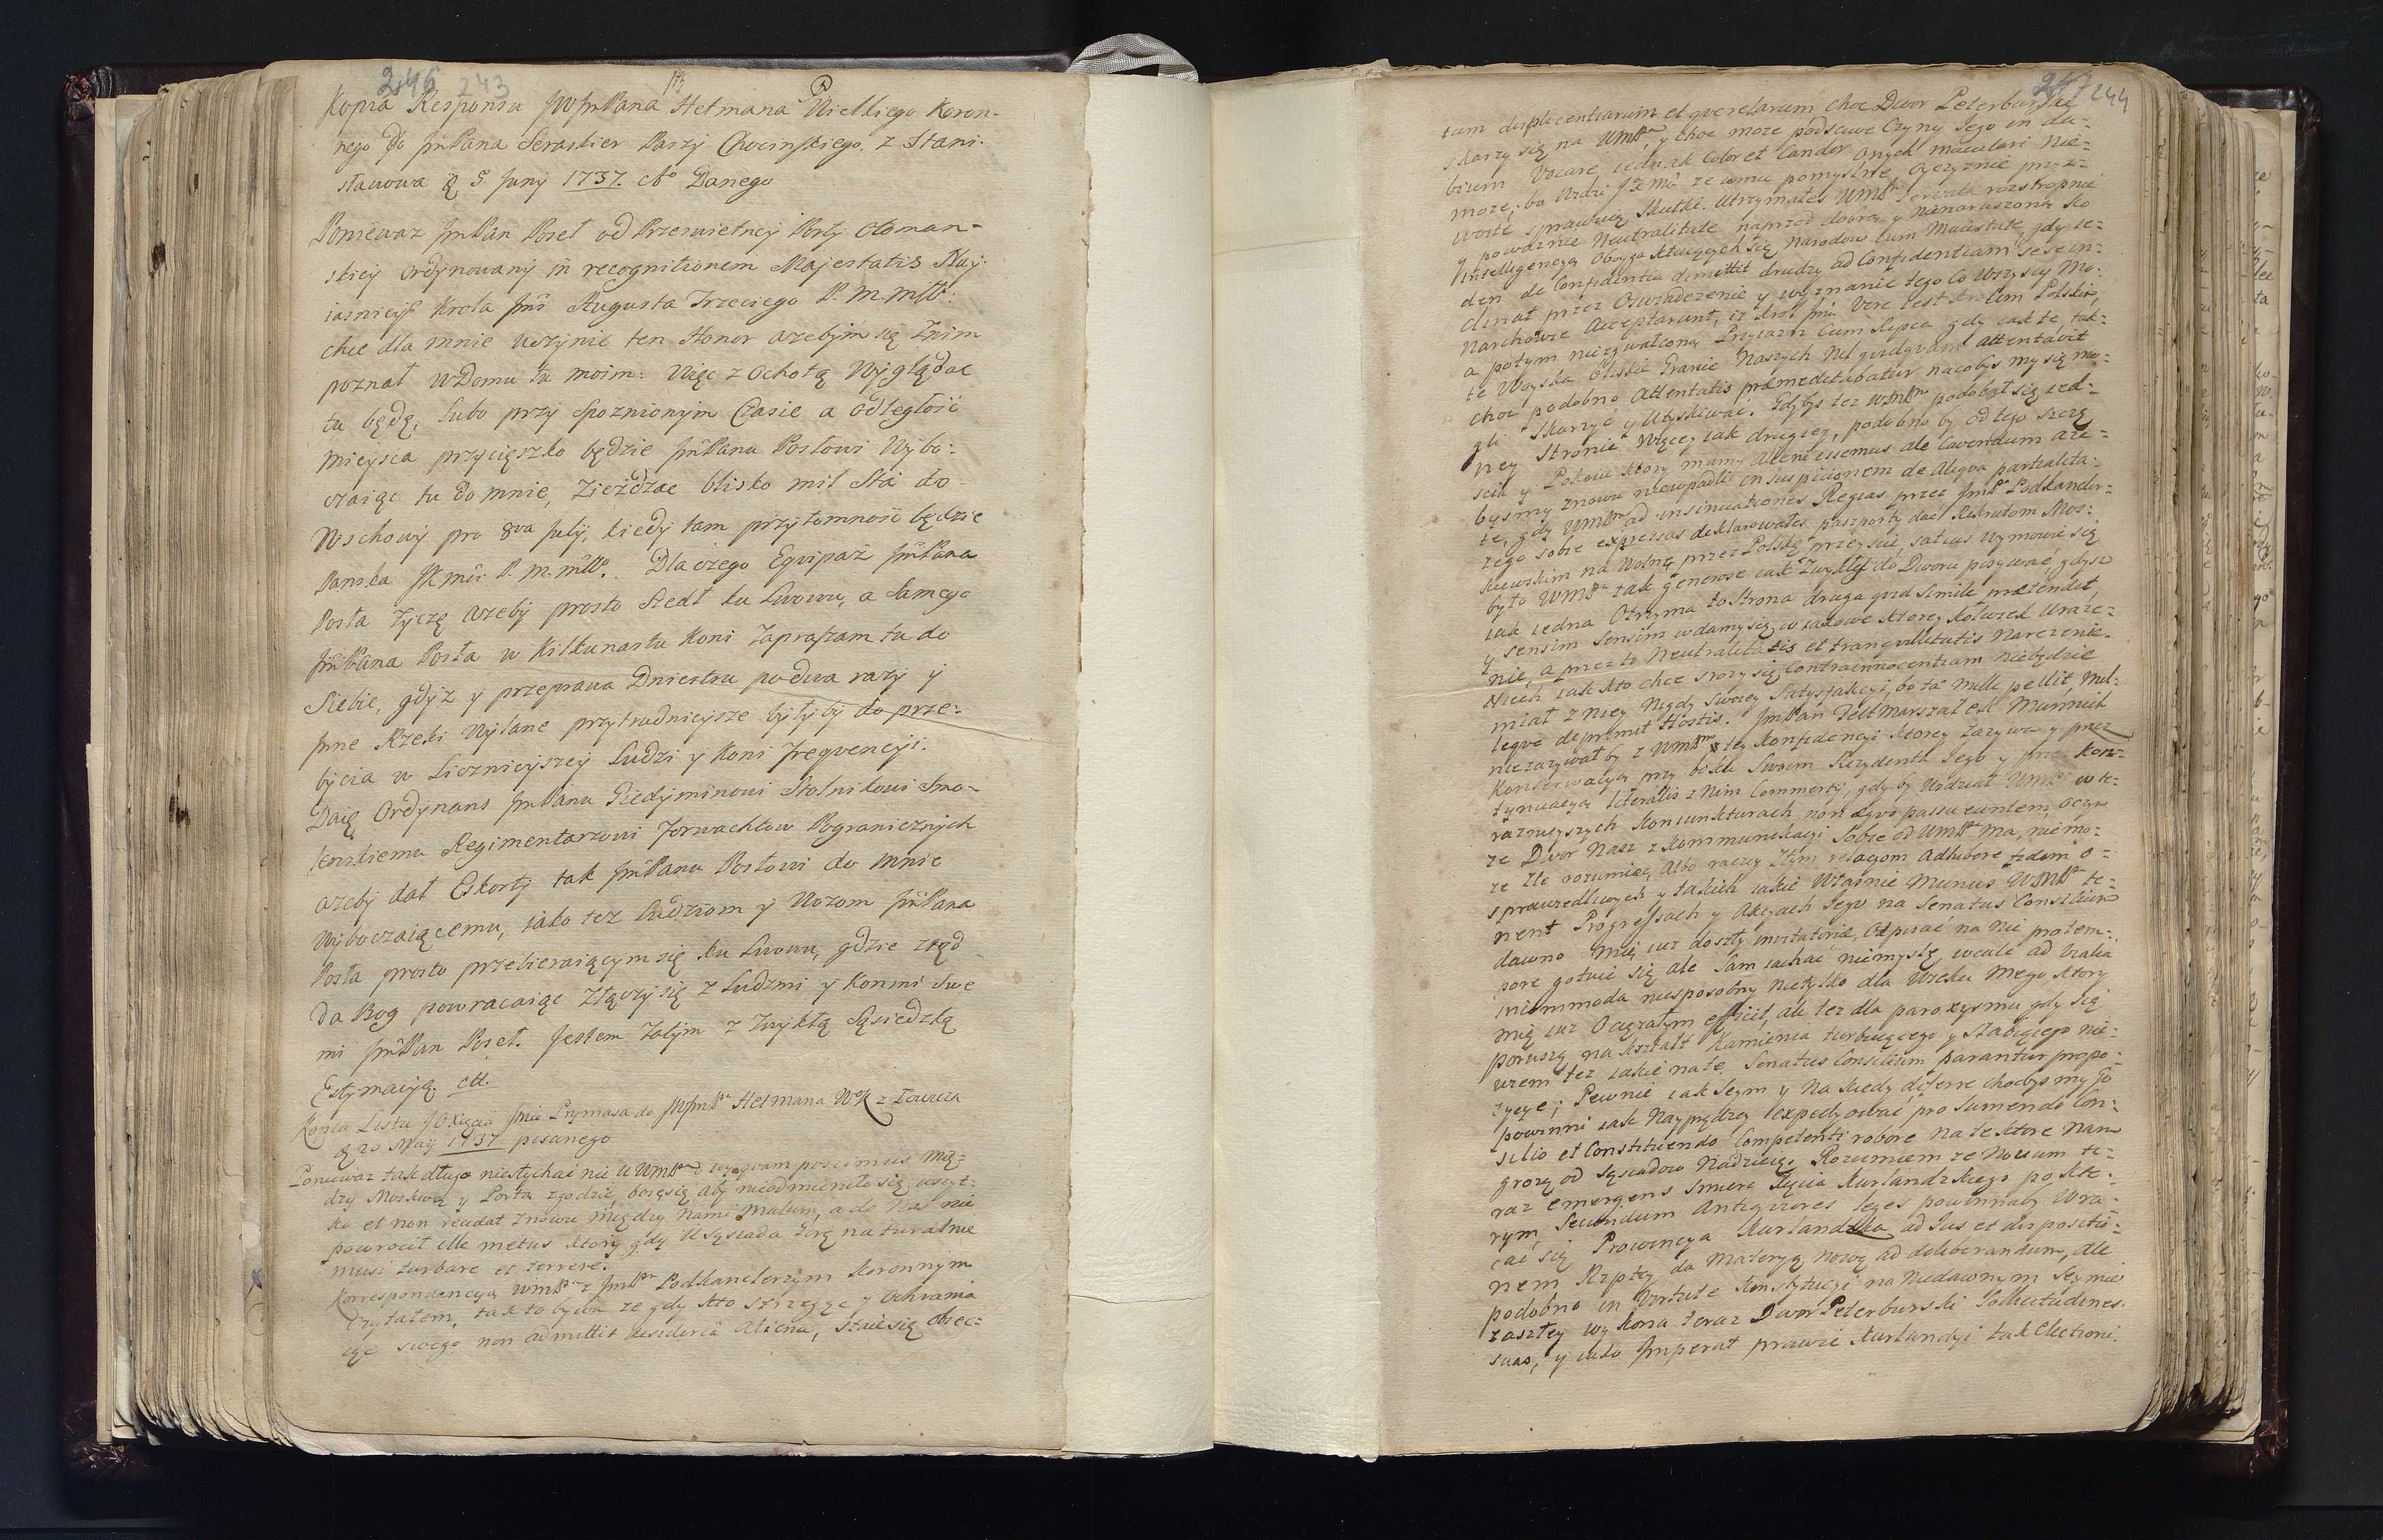 246 243
Kopia Responsu JWJmPana Hetmana Wielkiego Koron-
nego Do JmPana Seraskier Baszy Chocimskiego. z Stani-
sławowa d. 5. Juny 1737. Ao Danego
Poniewaz JmPan Poseł od Przeswietney Porty Otoman-
skiey Ordynowany in recognitionem Majestatis Nay-
iasnieysz Krola Jmci Augusta Trzeciego P. M. Mło:
chce dla mnie uczynic ten Honor azebym się Znim
poznał w Domu tu moim: Więc z Ochotą Wyglądac
tu będę, lubo przy spoznionym Czasie a odległosc
mieysca przycięszko będzie JmPanu Posłowi Wybo-
czaiąc tu do mnie, Ziezdzac blisko mil Sta do
Wschowy pro 8va July, kiedy tam przytomnosc będzie
Panska JKmci P. M. mło. Dla czego Equipaz JmPana
Posła zyczę azeby prosto szedł ku Lwowu, a samego
JmPana Posła w Kilkunastu Koni Zapraszam tu do
Siebie, gdyz y przeprawa Dniestru po dwa razy y
Jnne Rzeki Wylane przytrudnieysze byłyby do prze-
bycia w Licznieyszey Ludzi y Koni frequencyi.
Daię Ordynans JmPanu Giedyminowi Stolnikowi Smo-
lenskiemu Regimentarzowi Forwachtow Pogranicznych
azeby dał Eskorty tak JmPanu Posłowi do mnie
Wyboczaiącemu, iako tez ludziom y Wozom JmPana
Posła prosto przebieraiącym się ku Lwowu, gdzie ztąd
da Bog powracaiąc Złączy się z Ludzmi y Konmi Swe
mi JmPan Poseł. Jestem Zatym z Zwykłą Sąsiedzką
Estymacyą. ett.
Kopia Listu JOXięcia Jmci Prymasa do JWJmPa Hetmana WK z Łowicza
d. 20 Maij 1737 pisanego
Poniewaz tak długo niesłychac nic u WmPa o tey quam poscimus mię-
dzy Moskwą y Portą zgodzie, boięsię aby nieodmieniło się wszyt-
ko et non recidat znowu między nami malum, a do Nas nie
powrocił ille metus ktory gdy u Sąsiada Gorę naturalnie
musi turbare et terrere.
Korrespondencyą WmPa z JmPa Podkanclerzym Koronnym
Czytałem, tak to bywa ze gdy kto strzegąc y Ochrania
iąc swego non admittit desideria aliena, staie się obiec-
247 244
tum displicentiarum et querelarum choc Dwor Peterburski
skarzy się na WmPa, y choc moze podsuwe Czyny Jego in du-
bium Vocare iednak Color et Candor Onych maculari Nie-
moze, bo Widzi JKMc ze iemu pomyslne, Oyczyznie przyz-
woite sprawuią skutki. Utrzymałes WmPa
y powaznie Neutralitate naprzod dobrą y nienaruszoną
intelligencyą Oboyga Narodow cum Maiestate, gdy ie-
den de Confidentia dimittit drudzy ad Confidentiam se in-
clinat przez Oswiadczenie y wyznanie tego Co Wszyscy Mo-
narchowie Acceptarunt, iz Krol Jmć Vere iest Krolem Polskim,
a potym niezgwałconą Przyiazn Cum Rzpca gdy iak te, tak-
te Woyska bliskie Granic Naszych Nil quidquam attentavit
choc podobno Attentatis praemeditabatur nacobys my się mo-
gli Skarzyc y Utyskiwac. Gdybys tez WmPan podobał się ied-
ney Stronie Więcey iak drugiey, podobno by od tego szczę
scia y Pokoiu ktory mamy Alieni essemus ale Cavendum aze-
bysmy znowu niewpadli in suspicionem de aliqua partialita-
te, gdy WmPan ad insinuationes Regias przez JmPa Podkancler-
zego sobie expressas deklarowałes paszporty dac Rekrutom Mos-
kiewskim na Wolnę przez Polskę przeyscie satius Wymowic się
było WmPa tak generose iak Zwykłes do Dworu pisywac, gdysz
iak iedna Otrzyma to Strona druga quid simile praetendet,
y sensim sensim wdamy się w iakowe ktorey kolwiek Uraze-
nie, a przez to Neutralitatis et tranquillitatis Narzezenie.
Niech iak kto chce srozy się Contra innocentiam niebędzie
miał z niey Nigdy swoiey satysfakcyi, bo ta Mille pellit, mil-
leque deprimit Hostis. JmPan Feltmarszałek Munnich
niezazywał by z WmPanem tey Konfidencyi ktorey zazywa y przez
Konserwacyą przy boku swoim Rezydenta Jego y przez Kon-
tynuacyą literalis z Nim Commercij, gdy by Widział WmPa w te-
raznieyszych Koniunkturach non aequo passu euntem, oczym
ze Dwor Nasz z kommunikacyi sobie od WmPa ma, niemo-
ze zle rozumiec, Albo raczey złym relacyom Adhibere fidem o
sprawiedliwych y takich iakie Własnie Munus WmPa te-
nent Progressach y Akcyach Jego na Senatus Consilium
dawno mię iuz doszły invitatoriae, Odpisac na Nie protem-
pore gotuie się ale Sam iachac niemyslę, wcale ad Viatia
incommoda niesposobny nietylko dla Wieku Mego, ktory
mię iuz Ociężałym efficit, ale tez dla paroxysmu gdy się
poruszę na kształt Kamienia turbuiącego y słabiącego nie-
wiem tez iakie na te Senatus Consilium parantur propo-
zycye; Pewnie iak Seym y Na kiedy diferre chocbysmy go
powinni iak Nayprędzey expedyowac pro sumendo Con-
silio et Constituendo Competenti robore na te ktore nam
grozą od sąsiadow Nadzieię. Rozumiem ze Novum te-
raz emergens smierc Xięcia Kurlandzkiego po kto-
rym, Secundum Antiquiores leges powinnaby Wra-
cac się Prowincya Kurlandzka ad Jus et dispositio-
nem Rzptey da Materyą nową ad deliberandum, ale
podobno in Virtute Konstytucyi na Niedawnym Seymie
zaszłey wykona teraz Dwor Peterburski Sollicitudines
suas, y iako Jmperat prawie Kurlandyi tak Electioni.